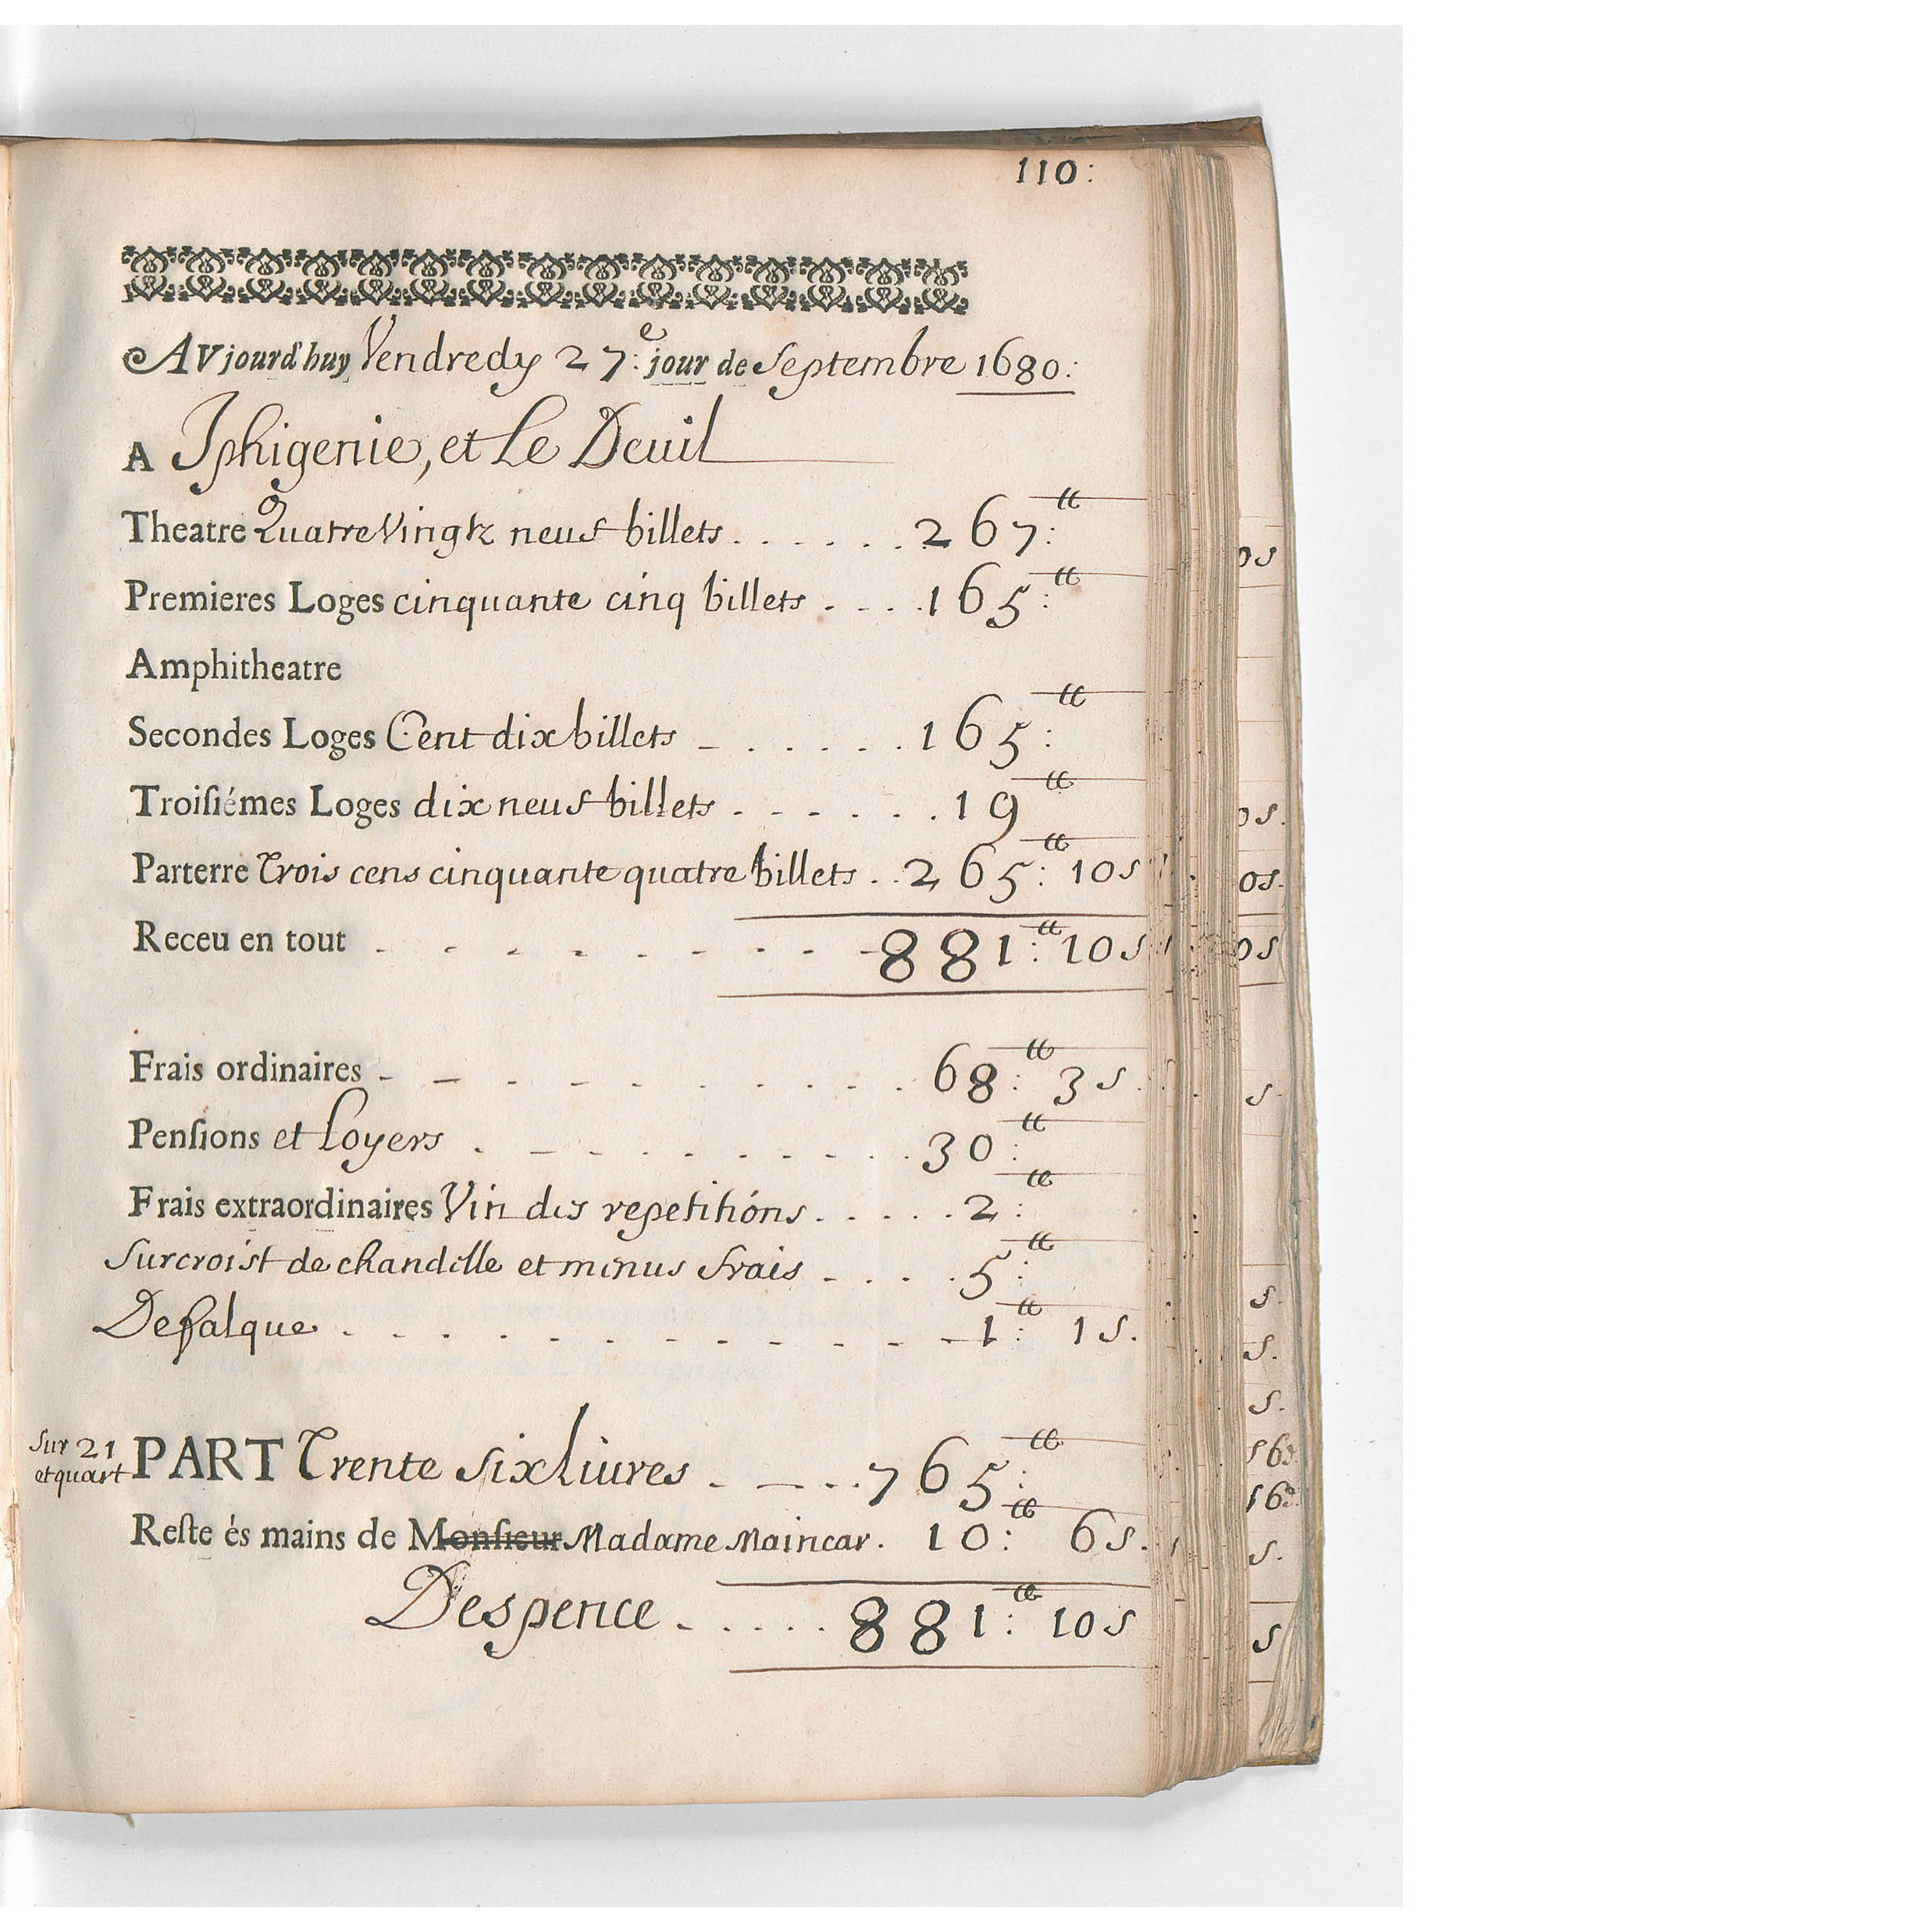 110:
AVjourd'huy Vendredy 27:e jour de Septembre 1680:
A Iphigenie, et Le Deuil
Theatre Quatre Vingtz neuf billets . . . . . . 267:tt
Premieres Loges cinquante cinq billets . . . . 165:tt
Amphitheatre
Secondes Loges Cent dix billets . . . . . . 165:tt
Troisiémes Loges dix neuf billets . . . . . . 19tt
Parterre Trois cens cinquante quatre billets . . 265:tt 10s
Receu en tout . . . . . . . . . 881:tt 10s
Frais ordinaires . . . . . . . . . 68:tt 3s.
Pensions et Loyers . . . . . . . . . 30:tt
Frais extraordinaires Vin des repetitions . . . . . 2:tt
Surcroist de chandelle et menus frais . . . . . 5:tt
Defalque . . . . . . . . . . . . 1:tt 1s.
Sur 21
et quart PART Trente Six Liures . . . . . 765:tt
Reste és mains de Monsieur Madame Maincar. 10:tt 6s.
Despence . . . . . . 881:tt 10s